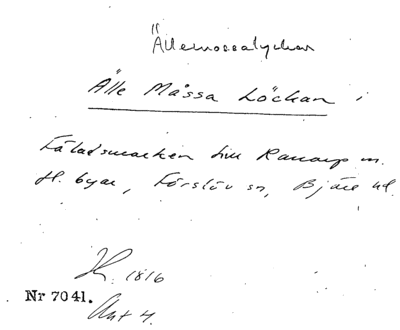 Ällemossalyckan
Älle Måssa Löckan i
Fäladsmarken till Ranarp m.
fl. byar, Förslöv sn, Bjäre hd.
1816
Nr 7041.
Akt 4.